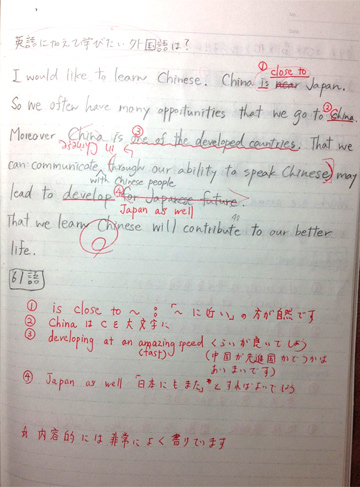 英語に加えて学びたい外国語は?
① close to
I would like to learn Chinese. China is near Japan.
So we often have many opportunities that we go to ② China.
③
Moreover China is one of the developed countries. That we
can communicate through our ability to speak Chinese may
with Chinese people
lead to develop ④ for Japanese future.
Japan as well
That we learn Chinese will contribute to our better
life.
61語
① is close to ~ : 「~に近い」の方が自然です
② China は C を大文字に
③ developing at an amazing speed くらいが良いでしょう
(fast) (中国が先進国かどうかは
あいまいです)
④ Japan as well 「日本にもまた」とすればよいでしょう
内容的には非常によく書けています